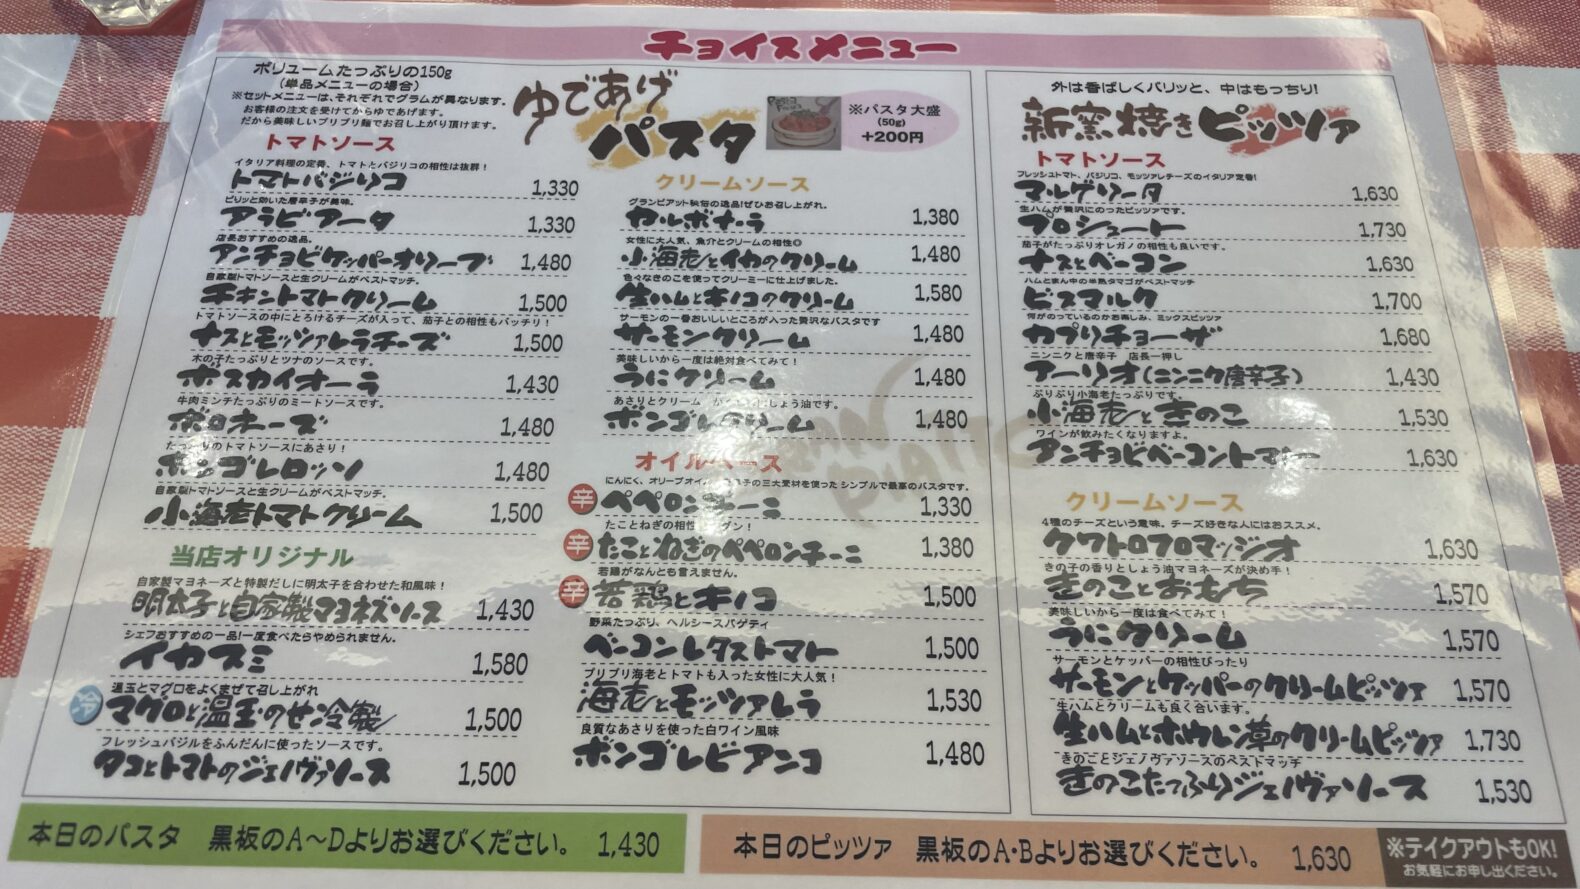 チョイスメニュー
ボリュームたっぷりの150g
(単品メニューの場合)
※セットメニューは、それぞれでグラムが異なります。
お客様の注文を受けてからゆであげます。
だから美味しいプリプリ麺でお召し上がり頂けます。
ゆであげ
パスタ
※パスタ大盛
(50g)
+200円
トマトソース
イタリア料理の定番、トマトとバジリコの相性は抜群!
トマトバジリコ 1,330
ピリッと効いた唐辛子が美味。
アラビアータ 1,330
店長おすすめの逸品。
アンチョビケッパーオリーブ 1,480
自家製トマトソースと生クリームがベストマッチ。
チキントマトクリーム 1,500
トマトソースの中にとろけるチーズが入って、茄子との相性もバッチリ!
ナスとモッツァレラチーズ 1,500
木の子たっぷりとツナのソースです。
ボスカイオーラ 1,430
牛肉ミンチたっぷりのミートソースです。
ボロネーズ 1,480
たっぷりのトマトソースにあさり!
ボンゴレロッソ 1,480
自家製トマトソースと生クリームがベストマッチ。
小海老トマトクリーム 1,500
当店オリジナル
自家製マヨネーズと特製だしに明太子を合わせた和風味!
明太子と自家製マヨネズソース 1,430
シェフおすすめの一品!一度食べたらやめられません。
イカスミ 1,580
温玉とマグロをよくまぜて召し上がれ
冷 マグロと温玉のせ冷製 1,500
フレッシュバジルをふんだんに使ったソースです。
タコとトマトのジェノヴァソース 1,500
クリームソース
グランピアット秘伝の逸品!ぜひお召し上がれ。
カルボナーラ 1,380
女性に大人気、魚介とクリームの相性◎
小海老とイカのクリーム 1,480
色々なきのこを使ってクリーミーに仕上げました。
生ハムとキノコのクリーム 1,580
サーモンの一番おいしいところが入った贅沢なパスタです
サーモンクリーム 1,480
美味しいから一度は絶対食べてみて!
うにクリーム 1,480
あさりとクリーム しょう油です。
ボンゴレクリーム 1,480
オイルベース
にんにく、オリーブオイル 子の三大素材を使った シンプルで最高のパスタです。
辛 ペペロンチーニ 1,330
たことねぎの相性 グン!
辛 たことねぎのペペロンチーニ 1,380
若鶏がなんとも言えません。
辛 若鶏とキノコ 1,500
野菜たっぷり、ヘルシースパゲティ
ベーコンレタストマト 1,500
プリプリ海老とトマトも入った女性に大人気!
海老とモッツァレラ 1,530
良質なあさりを使った白ワイン風味
ボンゴレビアンコ 1,480
外は香ばしくパリッと、中はもっちり!
新窯焼きピッツァ
トマトソース
フレッシュトマト、バジリコ、モッツァレラチーズのイタリア定番!
マルゲリータ 1,630
生ハムが贅沢にのったピッツァです。
プロシュート 1,730
茄子がたっぷりオレガノの相性も良いです。
ナスとベーコン 1,630
ハムとまん中の半熟タマゴがベストマッチ
ビスマルク 1,700
何がのっているのかお楽しみ、ミックスピッツァ
カプリチョーザ 1,680
ニンニクと唐辛子 店長一押し
アーリオ(ニンニク唐辛子) 1,430
ぷりぷり小海老たっぷりです。
小海老ときのこ 1,530
ワインが飲みたくなりますよ。
アンチョビベーコントマト 1,630
クリームソース
4種のチーズという意味。チーズ好きな人にはおススメ。
クワトロフロマッジオ 1,630
きの子の香りとしょう油マヨネーズが決め手!
きのことおもち 1,570
美味しいから一度は食べてみて!
うにクリーム 1,570
サーモンとケッパーの相性ぴったり
サーモンとケッパーのクリームピッツァ 1,570
生ハムとクリームも良く合います。
生ハムとホウレン草のクリームピッツァ 1,730
きのことジェノヴァソースのベストマッチ
きのこたっぷりジェノヴァソース 1,530
本日のパスタ 黒板のA～Dよりお選びください。 1,430
本日のピッツァ 黒板のA・Bよりお選びください。 1,630
※テイクアウトもOK!
お気軽にお申し出ください。